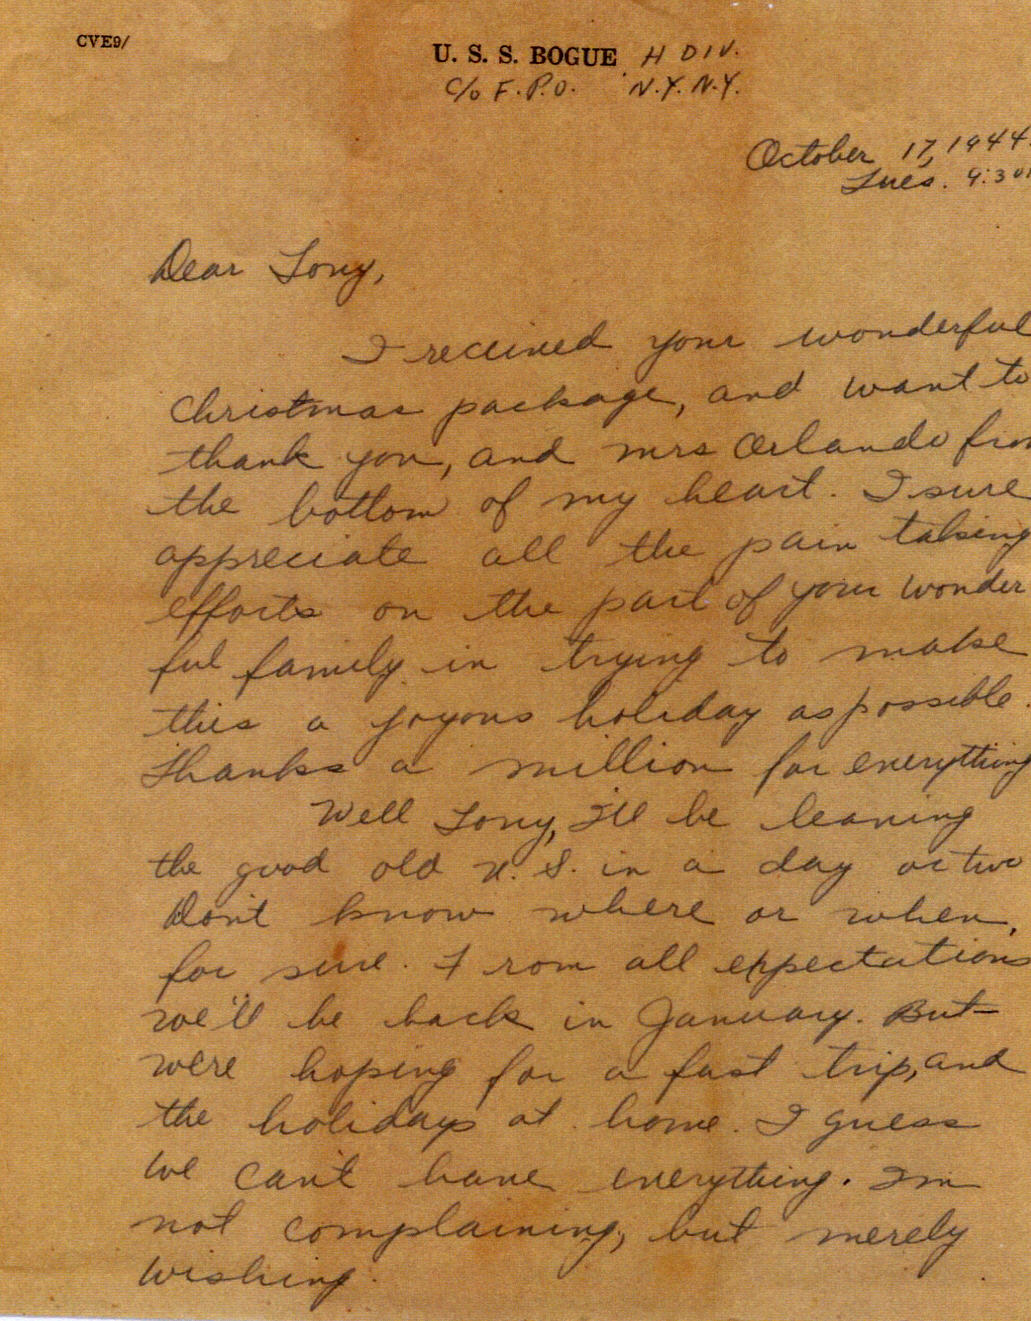 CVE9/
U. S. S. BOGUE H DIV.
C/o F.P.O. N.Y. N.Y.
October 17, 1944
Tues. 9:30
Dear Tony,
I received your wonderful
Christmas package, and want to
thank you, and mrs Orlando from
the bottom of my heart. I sure
appreciate all the pain taking
efforts on the part of your wonder
ful family in trying to make
this a joyous holiday as possible.
Thanks a million for everything
Well Tony, I'll be leaving
the good old U.S. in a day or two
Don't know where or when,
for sure. From all expectations
we'll be back in January. But
we're hoping for a fast trip, and
the holidays at home. I guess
we can't have everything. I'm
not complaining, but merely
wishing.